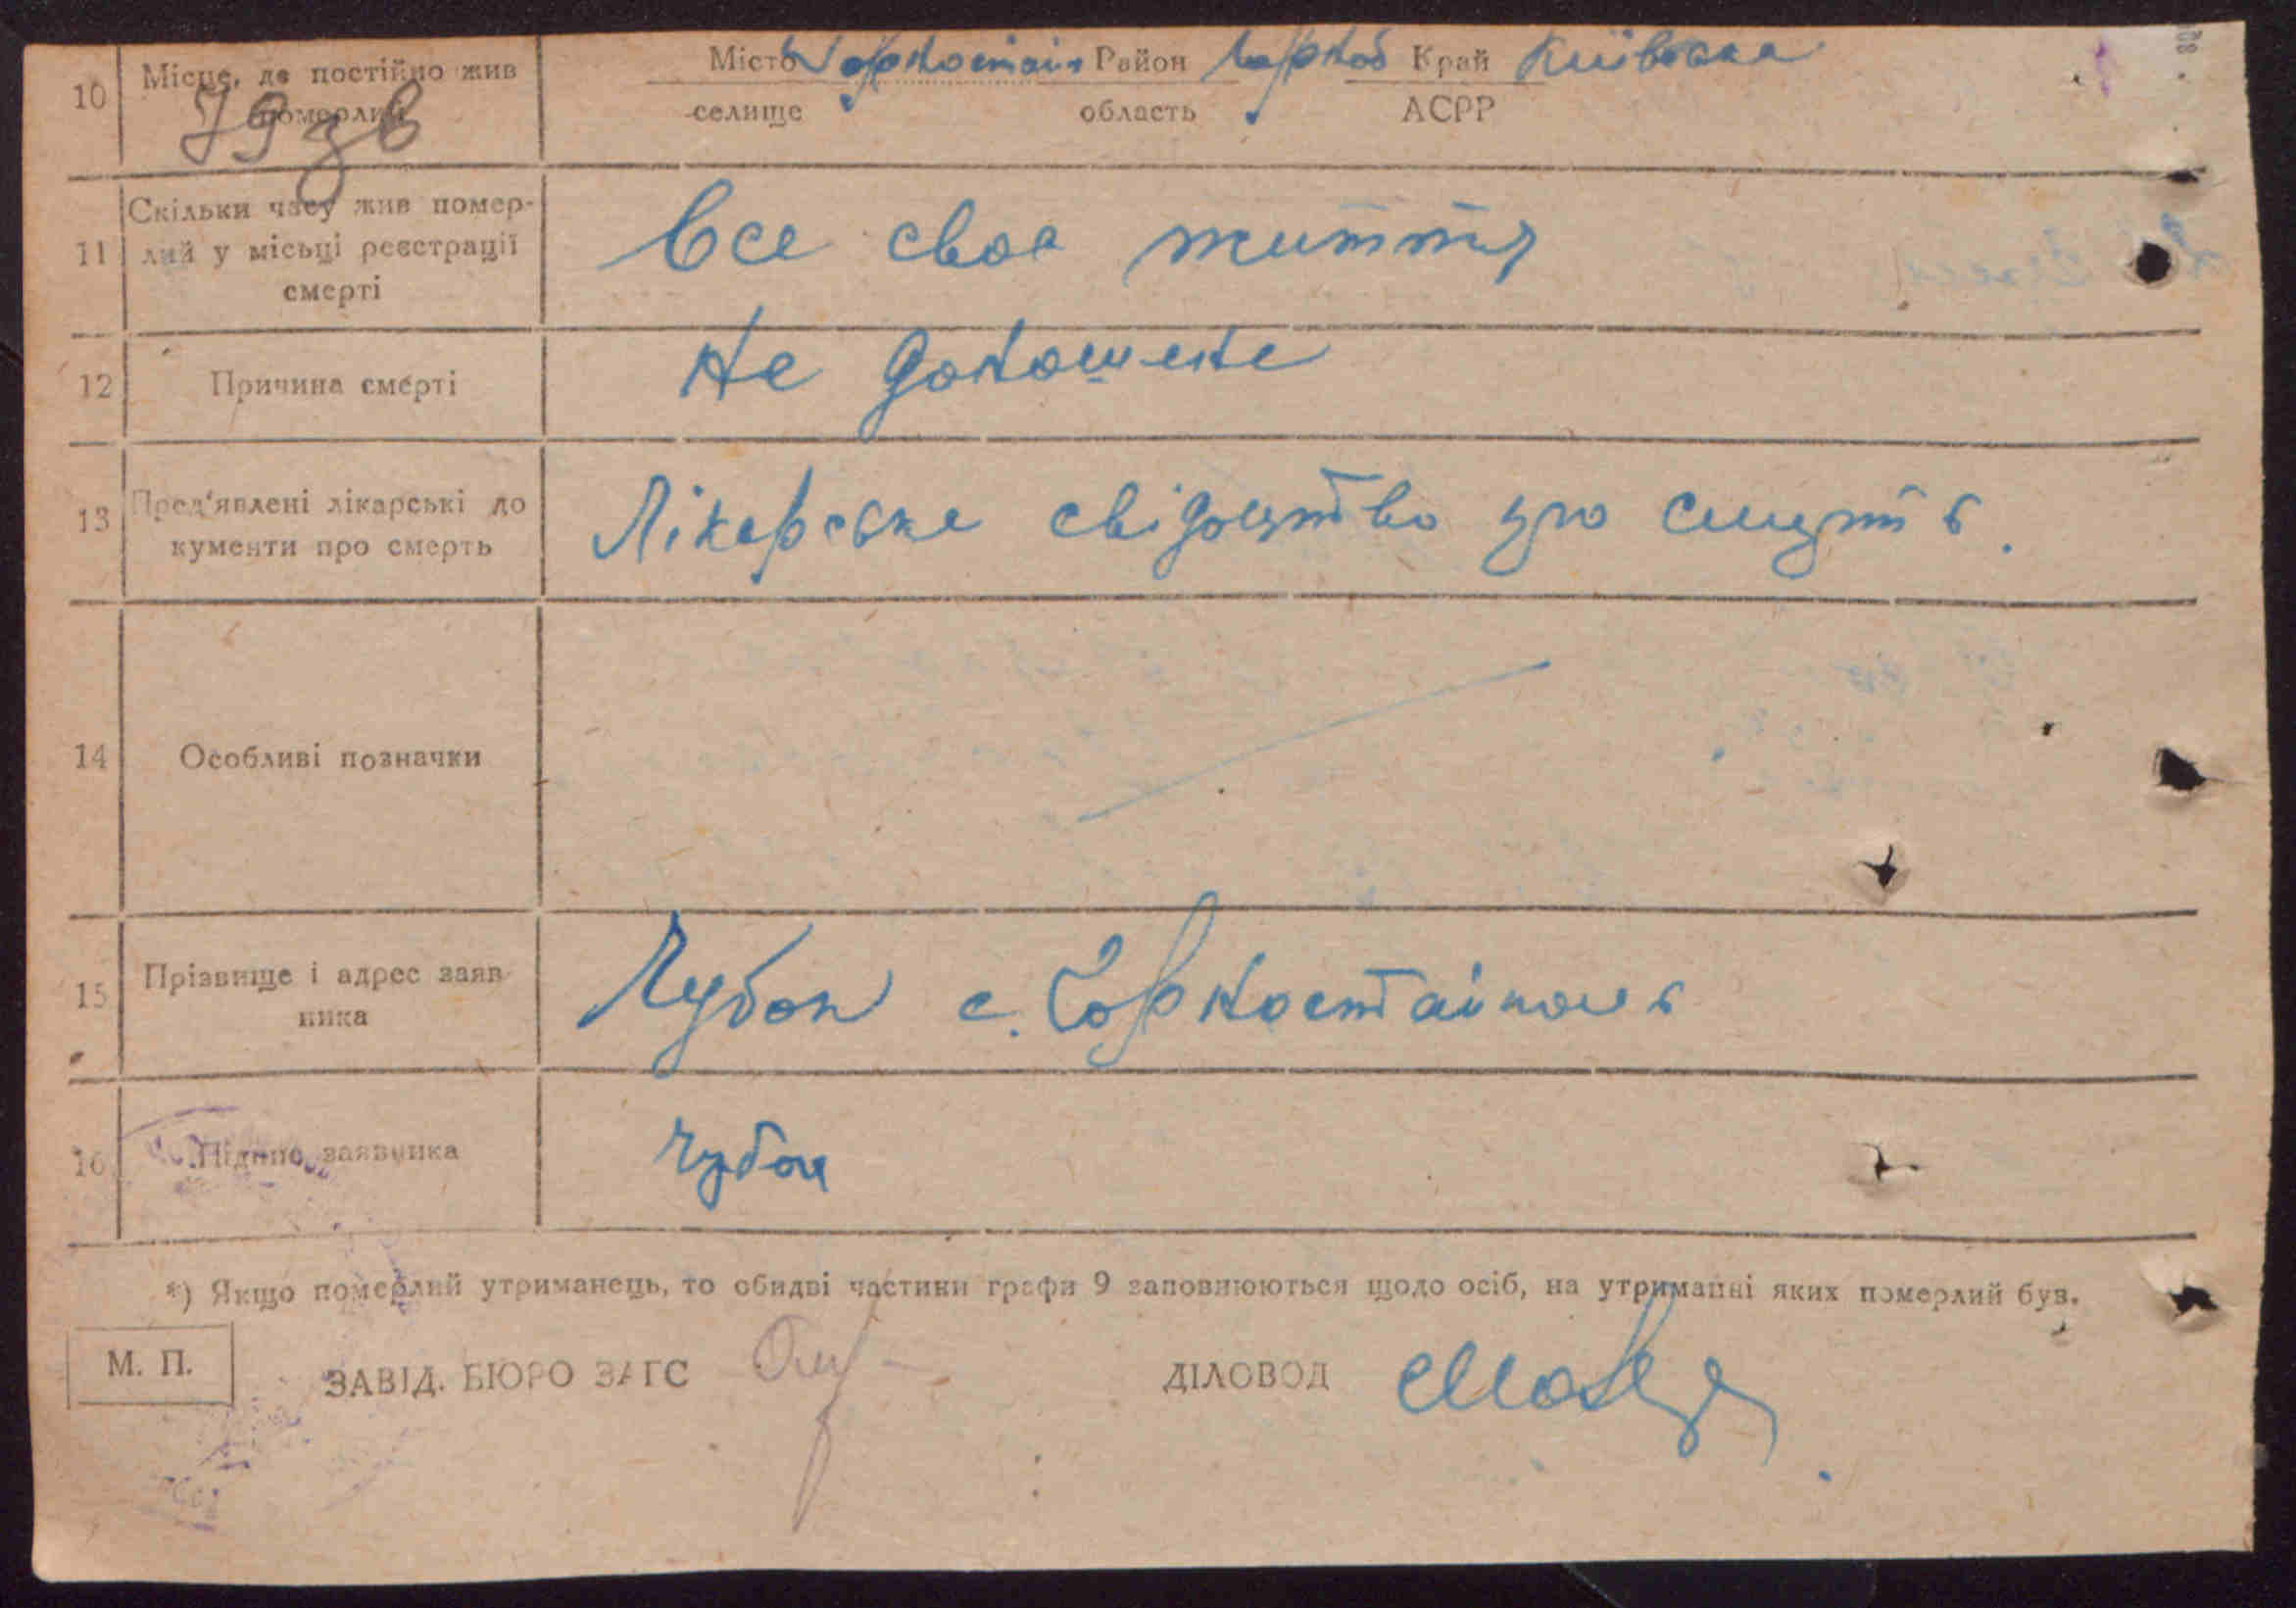 10 Місце, де постійно жив померлий
79зв
Місто Горностай Район Горност Край Київська
селище область АСРР
11 Скільки часу жив помер-
лий у місьці реєстрації
смерті
все своє життя
12 Причина смерті
не доношене
13 Пред'явлені лікарські до
кументи про смерть
Лікарське свідоцтво про смерть.
14 Особливі позначки
15 Прізвище і адрес заяв
ника
Чубон с. Горностайполь
16 Підпис заявника
Чубон
*) Якщо померлий утриманець, то обидві частини графи 9 заповнюються щодо осіб, на утриманні яких померлий був.
М. П.
ЗАВІД. БЮРО ЗАГС
ДІЛОВОД